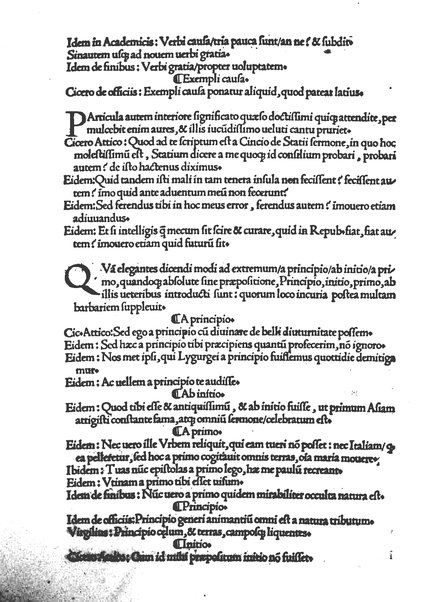 Idem in Academicis: Verbi causa/tria pauca sunt/an ne? & subdit•
Sinautem usq̃ ad nouem uerbi gratia•
Idem de finibus: Verbi gratia/propter uoluptatem•
¶Exempli causa•
Cicero de officiis: Exempli causa ponatur aliquid, quod pateat latius•
PArticula autem interiore significatio quæso doctissimi quiq̃ attendite, per
mulcebit enim aures, & illis iucũdissimo ueluti cantu pruriet•
Cicero Attico: Quod ad te scriptum est a Cincio de Statii sermone, in quo hoc
molestissimũ est, Statium dicere a me quoq̃ id consilium probari, probari
autem? de isto hactenus diximus•
Eidem: Quid tandem isti mali in tam tenera insula non fecissent? fecissent au-
tem? imo quid ante aduentum meũ non fecerunt?
Eidem: Sed ferendus tibi in hoc meus error, ferendus autem? imouero etiam
adiuuandus•
Eidem: Et si intelligis q̃ mecum sit scire & curare, quid in Repub• fiat, fiat au-
tem? imouero etiam quid futurũ sit•
QVá elegantes dicendi modi ad extremum/a principio/ab initio/a pri-
mo, quandoq̃ absolute sine præpositione, Principio, initio, primo, ab
illis ueteribus introducti sunt: quorum loco incuria postea multam
barbariem suppleuit•
¶A principio•
Cic• Attico: Sed ego a principio cũ diuinare de belli diuturnitate possem•
Eidem: Sed hæc a principio tibi præcipiens quantũ profecerim, nõ ignoro•
Eidem: Nos met ipsi, qui Lygurgei a principio fuissemus quottidie demitiga
mur•
Eidem: Ac uellem a principio te audisse•
¶Ab initio•
Eidem: Quod tibi esse & antiquissimũ, & ab initio fuisse, ut primum Asiam
attigisti constante fama, atq̃ omniũ sermone/celebratum est•
¶A primo•
Eidem: Nec uero ille Vrbem reliquit, q̃ eam tueri nõ posset: nec Italiam/q̃
ea pelleretur, sed hoc a primo cogitauit omnis terras, oĩa maria mouere•
Ibidem: Tuas nũc epistolas a primo lego, hæ me paulũ recreant•
Eidem: Vtinam a primo tibi esset uisum•
Idem de finibus: Nũc uero a primo quidem mirabiliter occulta natura est•
¶Principio•
Idem de officiis: Principio generi animantiũ omni est a natura tributum•
Virgilius: Principio cęlum, & terras, camposq̃ liquentes•
¶Initio•
Cicero Attico: Cum id mihi præpositum initio nõ fuisset•
i